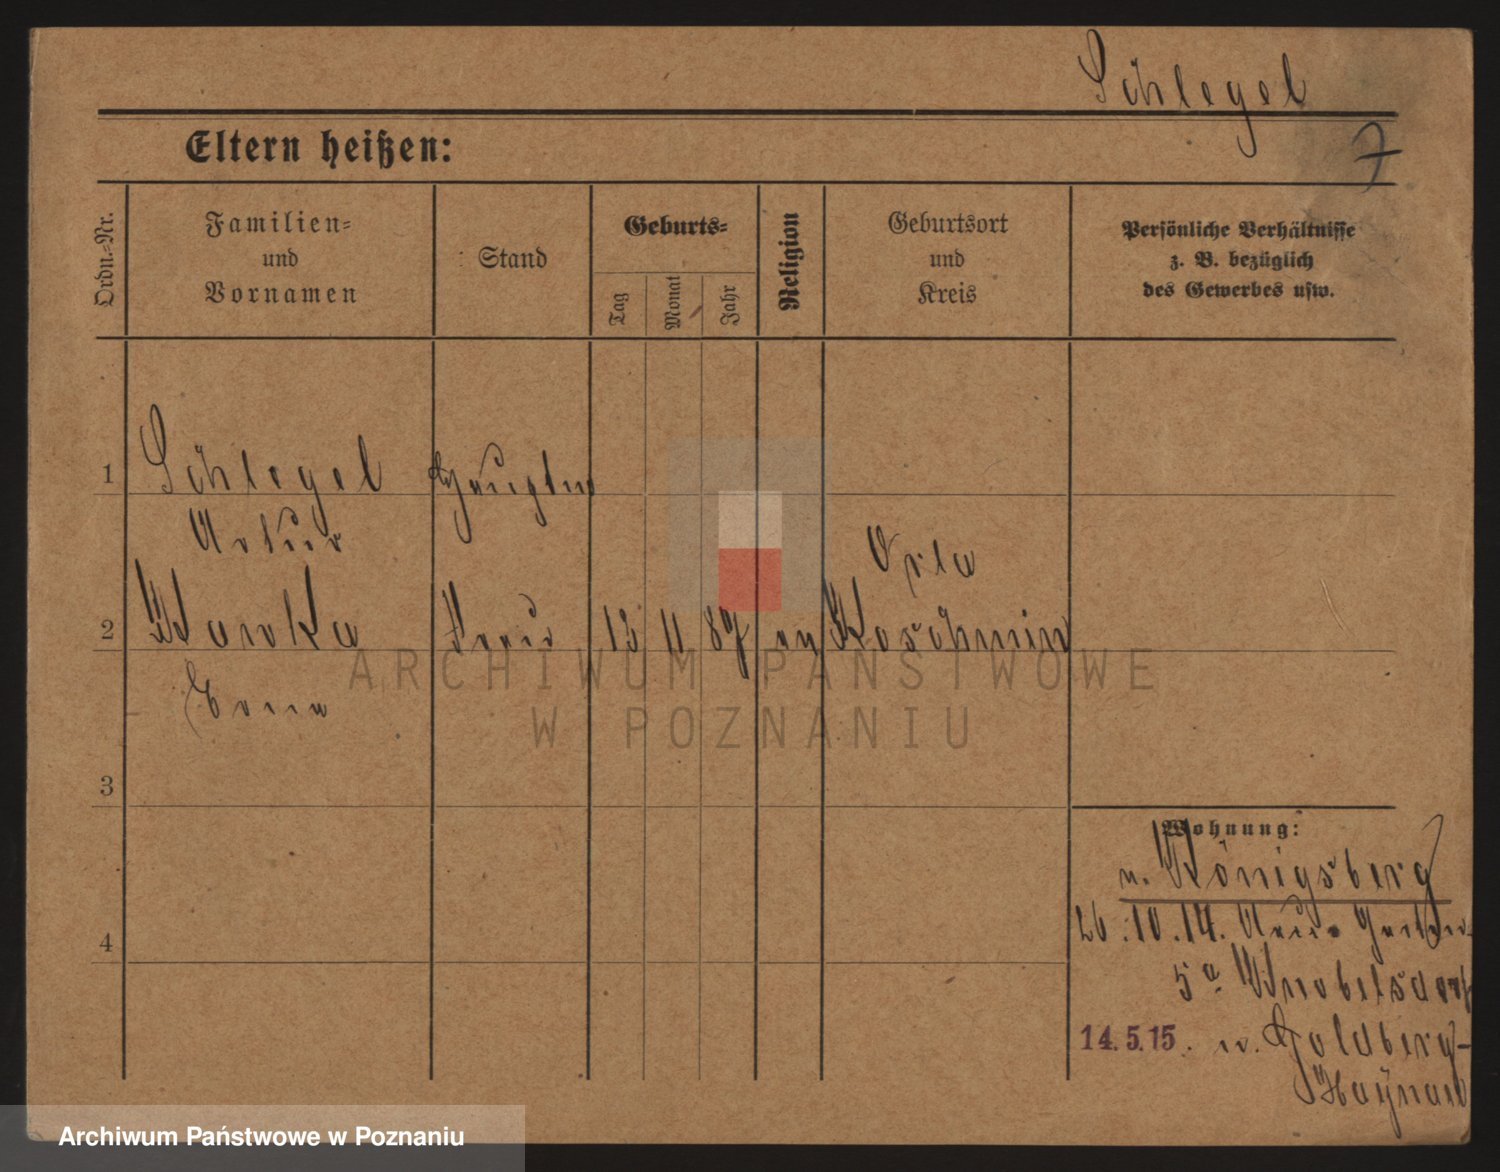 Schlegel
7
Eltern heißen:
Ordn.-Nr.
Familien-
und
Vornamen
Stand
Geburts-
Tag
Monat
Jahr
Religion
Geburtsort
und
Kreis
Persönliche Verhältnisse
z. B. bezüglich
des Gewerbes usw.
1 Schlegel
Artur
Orla
2 Frau 13 11 87 ev Koschmin
Erna
ARCHIWUM PAŃSTWOWE
W POZNANIU
3
Wohnung:
n. Königsberg
4
26.10.14.
5a Knobelsdorf
14.5.15. n. Goldberg-
Haynau
Archiwum Państwowe w Poznaniu